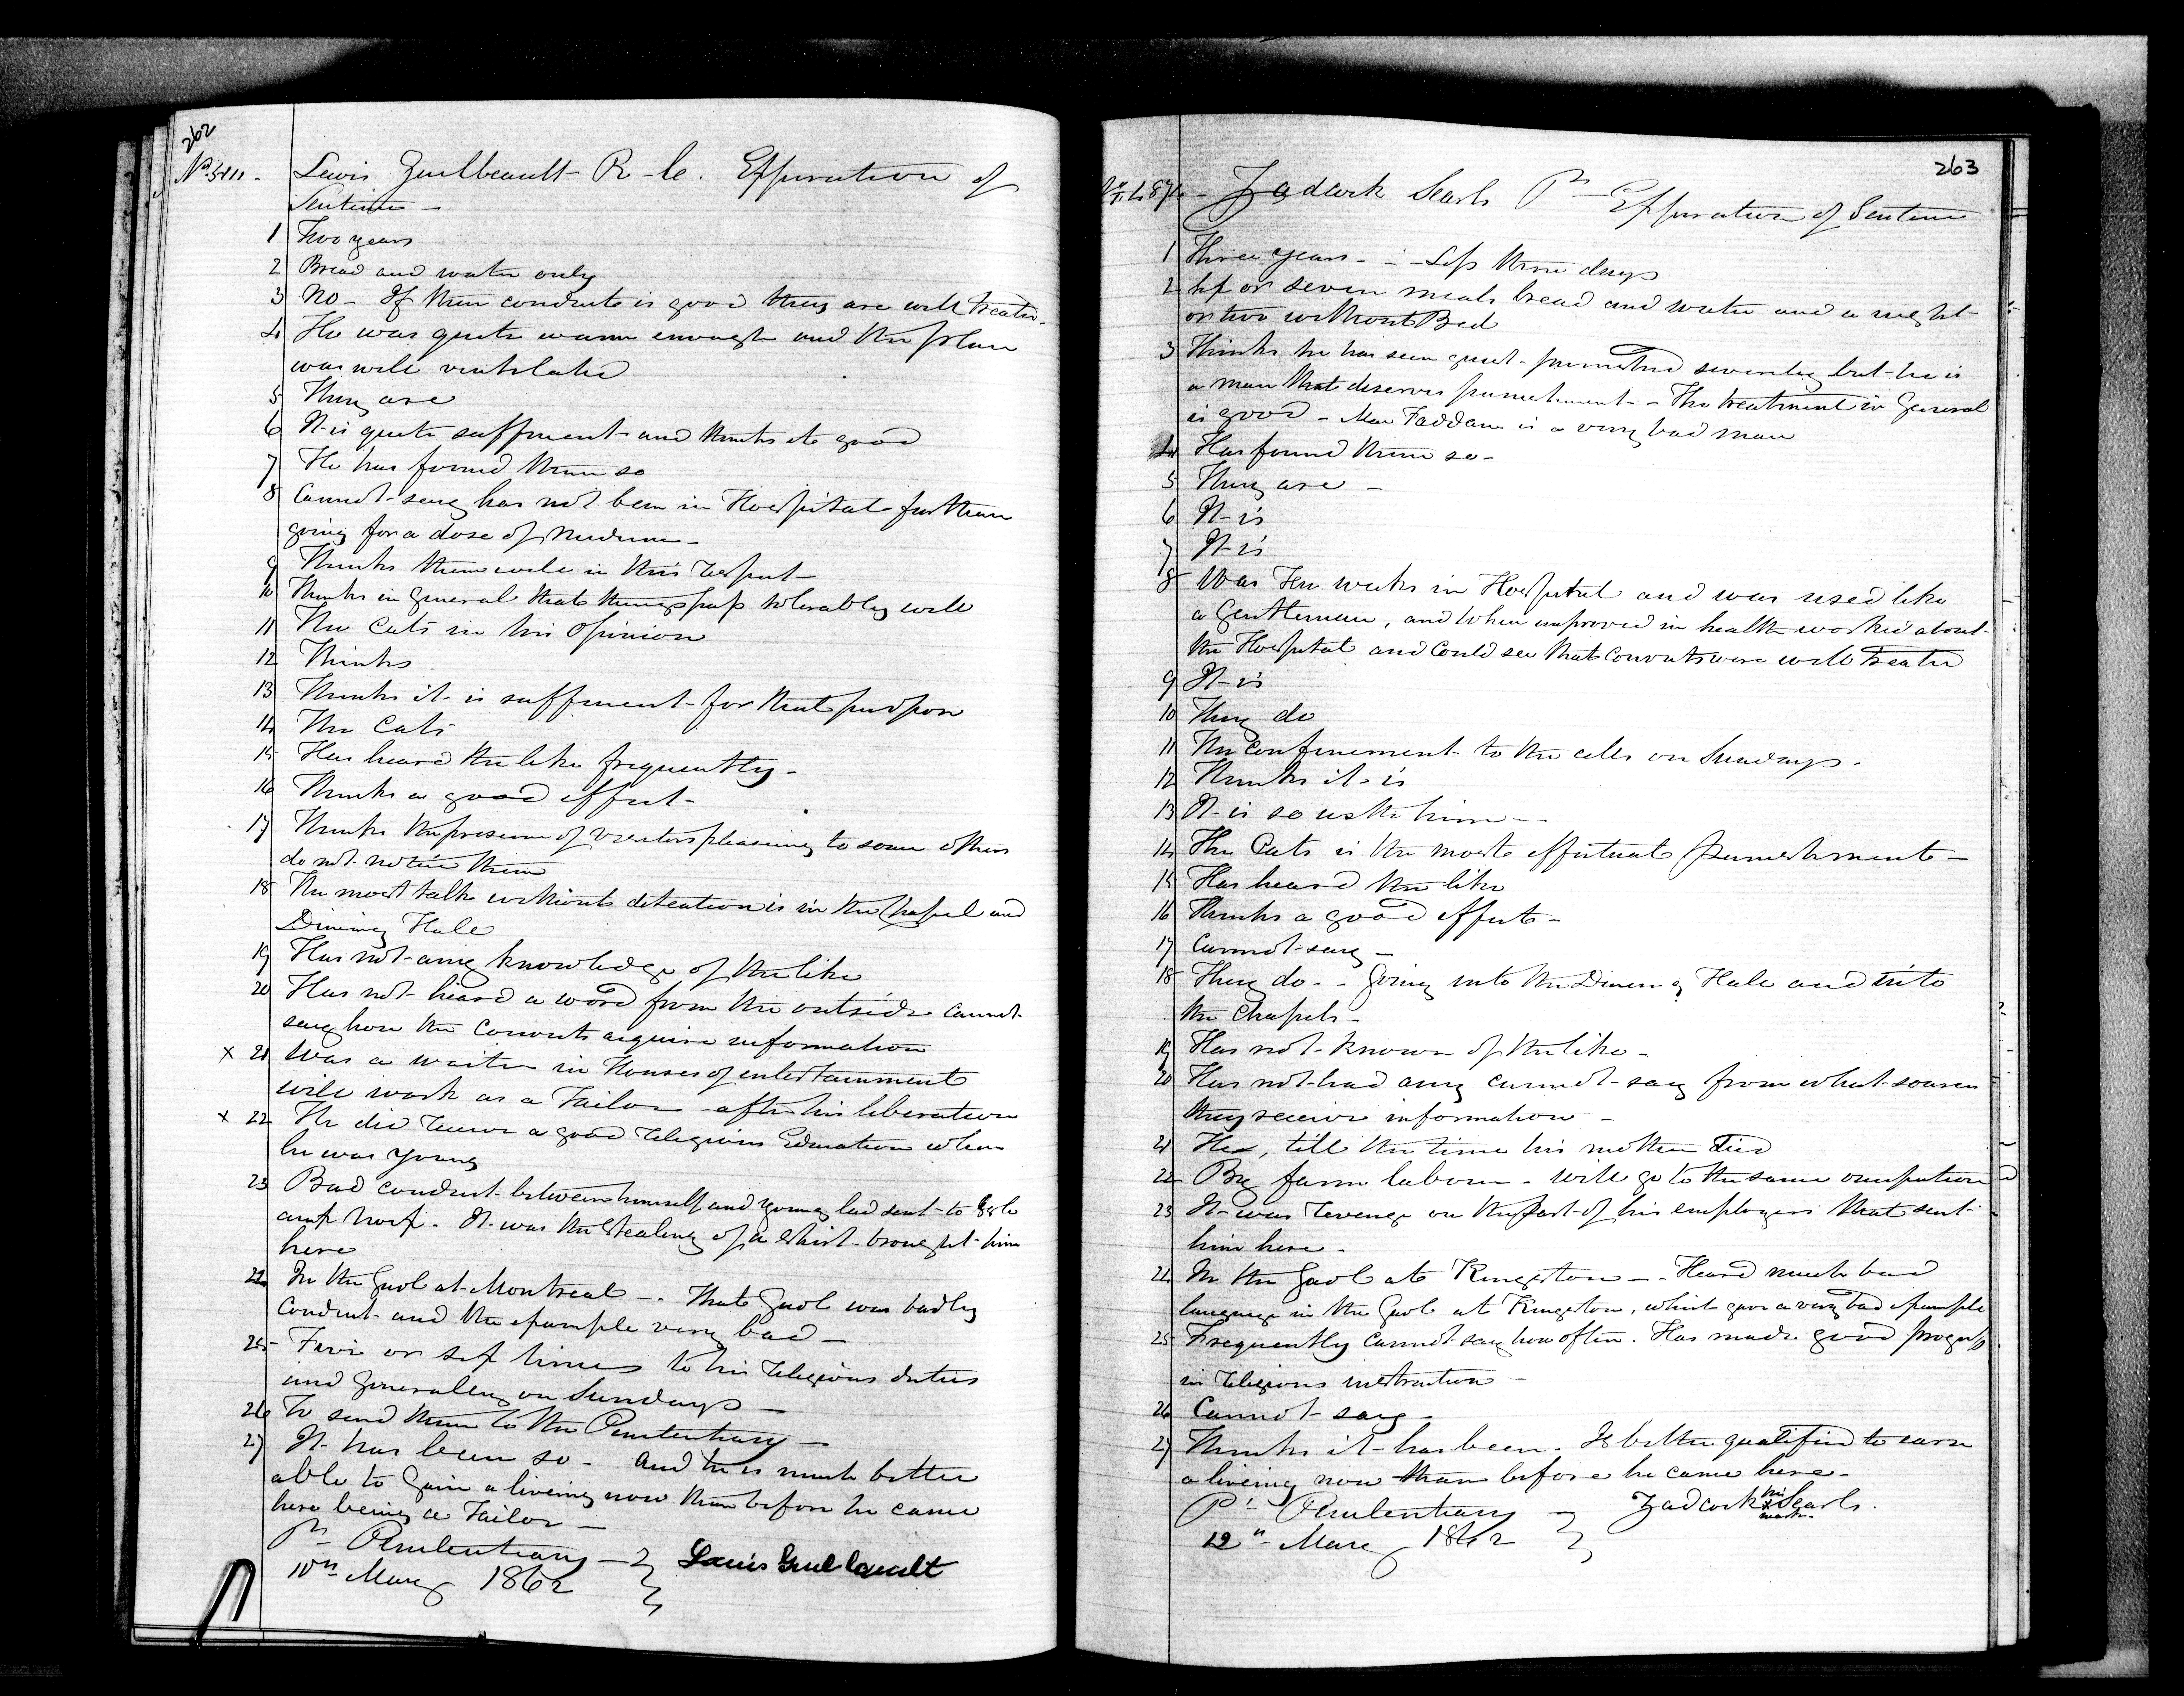 262
Lewis Guilbeault R. C. Expiration of
Sentence -
1 Two years
2 Bread and water only
3 No - If their conduct is good they are well treated.
4 He was quite warm enough and the place
was well ventilated
5 They are
6 It is quite sufficient and thinks it good
7 He has found them so
8 Cannot say has not been in Hospital further
going for a dose of Medicine -
9 Thinks them well in this respect -
10 Thinks in general that things pass tolerably well
11 The Cats in his opinion
12 Thinks
13 Thinks it is sufficient for that purpose
14 The Cats
15 Has heard the like frequently -
16 Thinks a good effect -
17 Thinks the presence of visitors pleasing to some others
do not notice them
18 The most talk without detection is in the Chapel and
Dining Hall
19 Has not any knowledge of the like
20 Has not heard a word from the outside cannot
say how the Convicts acquire information
x 21 Was a waiter in Houses of entertainment
will work as a Tailor after his liberation
x 22 He did receive a good religious Education when
he was young
23 Bad conduct between himself and young lad sent to
. It was the stealing of a shirt brought him
here
24 In the Gaol at Montreal - . That Gaol was badly
conduct and the example very bad -
25 Five or six times to his religious duties
and generally on Sundays -
26 To send them to the Penitentiary -
27 It has been so - And he is much better
able to gain a liveing now than before he came
here being a Tailor -
Pl Penitentiary -
10th May 1862
Louis Guilbeault
263
Zadcock Searls Pt Expiration of Sentence
1 Three years - - Less three days
2 Six or seven meals bread and water and a night
or two without Bed
3 Thinks he has seen punished severely but he is
a man that deserves punishment - The treatment in General
is good - Mac Faddam is a very bad man
4 Has found them so -
5 They are -
6 It is
7 It is
8 Was Ten weeks in Hospital and was used like
a Gentleman, and when improved in health worked about
the Hospital and could see that Convicts were well treated
9 It is
10 They do
11 The confinement to the cells on Sundays.
12 Thinks it is
13 It is so with him - -
14 The Cats is the most effectual punishment -
15 Has heard the like
16 Thinks a good effect -
17 Cannot say -
18 They do - - Going into the Dining Hall and into
the Chapels -
19 Has not known of the like -
20 Has not had any cannot say from what source
they receive information -
21 He , till the time his mother died
22 By farm labour - will go to the same occupation
23 It was revenge on the part of his employers that sent
him here -
24 In the Gaol at Kingston - . Heard much bad
language in the Gaol at Kingston, which gave a very bad example
25 Frequently cannot say how often. Has made good progress
in religious instruction -
26 Cannot say -
27 Thinks it has been. Is better qualified to earn
a liveing now than before he came here -
Pl Penitentiary -
12th May 1862
Zadcock his x mark Searls.